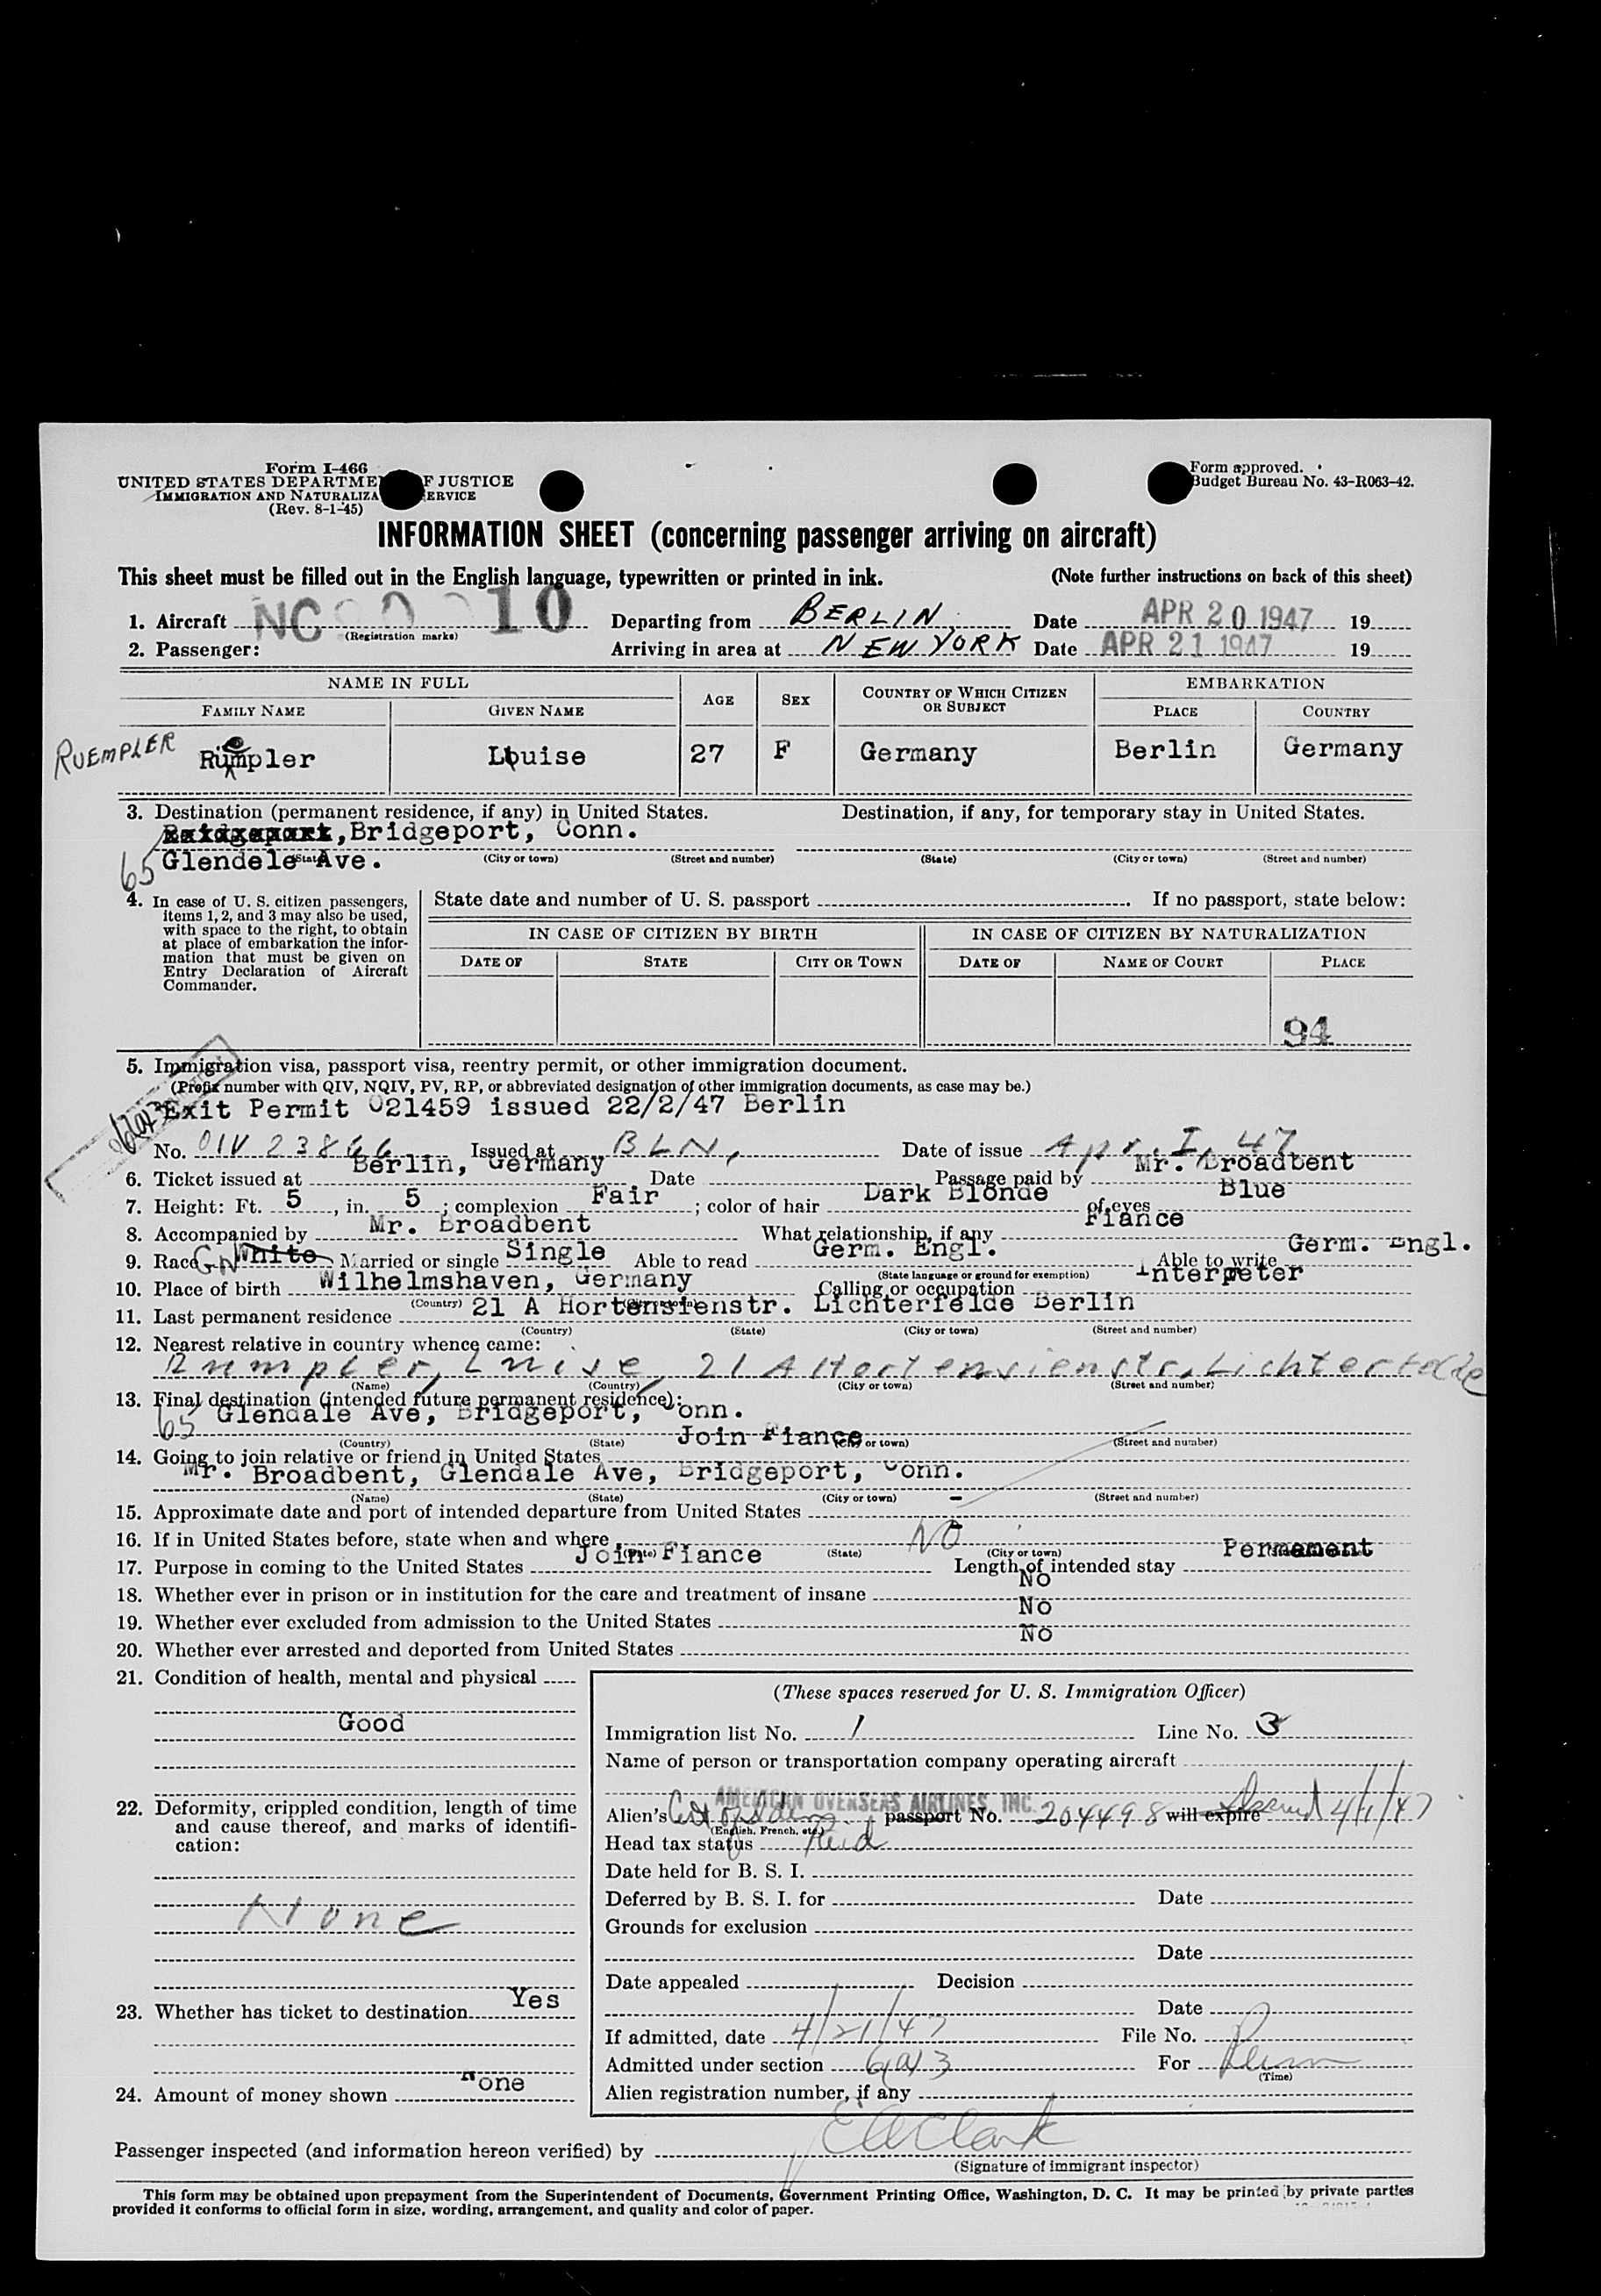 Form I-466
UNITED STATES DEPARTMENT OF JUSTICE
IMMIGRATION AND NATURALIZA ERVICE
(Rev. 8-1-45)
Form approved.
Budget Bureau No. 43-R063-42.
INFORMATION SHEET (concerning passenger arriving on aircraft)
This sheet must be filled out in the English language, typewritten or printed in ink. (Note further instructions on back of this sheet)
1. Aircraft NC 10 Departing from BERLIN Date APR 20 1947 19
(Registration marks)
2. Passenger: Arriving in area at NEW YORK Date APR 21 1947 19
NAME IN FULL AGE SEX COUNTRY OF WHICH CITIZEN OR SUBJECT EMBARKATION
FAMILY NAME GIVEN NAME PLACE COUNTRY
RUEMPLER Rumpler e Louise 27 F Germany Berlin Germany
3. Destination (permanent residence, if any) in United States. Destination, if any, for temporary stay in United States.
, Bridgeport, Conn.
65 Glendele Ave.
(State) (City or town) (Street and number) (State) (City or town) (Street and number)
4. In case of U. S. citizen passengers, items 1, 2, and 3 may also be used, with space to the right, to obtain at place of embarkation the information that must be given on Entry Declaration of Aircraft Commander.
State date and number of U. S. passport . If no passport, state below:
IN CASE OF CITIZEN BY BIRTH IN CASE OF CITIZEN BY NATURALIZATION
DATE OF STATE CITY OR TOWN DATE OF NAME OF COURT PLACE
94
5. Immigration visa, passport visa, reentry permit, or other immigration document.
(Prefix number with QIV, NQIV, PV, RP, or abbreviated designation of other immigration documents, as case may be.)
Exit Permit 021459 issued 22/2/47 Berlin
No. QIV 23866 Issued at BLN, Date of issue Apr. I, 47
6. Ticket issued at Berlin, Germany Date Passage paid by Mr. Broadbent
7. Height: Ft. 5, in. 5; complexion Fair; color of hair Dark Blonde of eyes Blue
8. Accompanied by Mr. Broadbent What relationship, if any Fiance
9. Race GN White Married or single Single Able to read Germ. Engl. Able to write Germ. Engl.
(State language or ground for exemption)
10. Place of birth Wilhelmshaven, Germany Calling or occupation Interpeter
(Country) (City or town)
11. Last permanent residence 21 A Hortensienstr. Lichterfelde Berlin
(Country) (State) (City or town) (Street and number)
12. Nearest relative in country whence came:
Rumpler, Luise, 21 A Hortensienstr. Lichterfelde
(Name) (Country) (City or town) (Street and number)
13. Final destination (intended future permanent residence):
65 Glendale Ave, Bridgeport, Conn.
(Country) (State) (City or town) (Street and number)
14. Going to join relative or friend in United States Join Fiance
Mr. Broadbent, Glendale Ave, Bridgeport, Conn.
(Name) (State) (City or town) (Street and number)
15. Approximate date and port of intended departure from United States -
16. If in United States before, state when and where NO
(Date) (State) (City or town)
17. Purpose in coming to the United States Join Fiance Length of intended stay Permament
18. Whether ever in prison or in institution for the care and treatment of insane No
19. Whether ever excluded from admission to the United States No
20. Whether ever arrested and deported from United States No
21. Condition of health, mental and physical
Good
22. Deformity, crippled condition, length of time and cause thereof, and marks of identification:
None
23. Whether has ticket to destination Yes
24. Amount of money shown None
(These spaces reserved for U. S. Immigration Officer)
Immigration list No. 1 Line No. 3
Name of person or transportation company operating aircraft
AMERICAN OVERSEAS AIRLINES INC.
Alien's passport No. 204498 will expire Issued 4/1/47
(English, French, etc.)
Head tax status Paid
Date held for B. S. I.
Deferred by B. S. I. for Date
Grounds for exclusion
Date
Date appealed Decision
Date
If admitted, date 4/21/47 File No.
Admitted under section 6(a)3 For Perm
(Time)
Alien registration number, if any
Passenger inspected (and information hereon verified) by E A Clark
(Signature of immigrant inspector)
This form may be obtained upon prepayment from the Superintendent of Documents, Government Printing Office, Washington, D. C. It may be printed by private parties
provided it conforms to official form in size, wording, arrangement, and quality and color of paper.